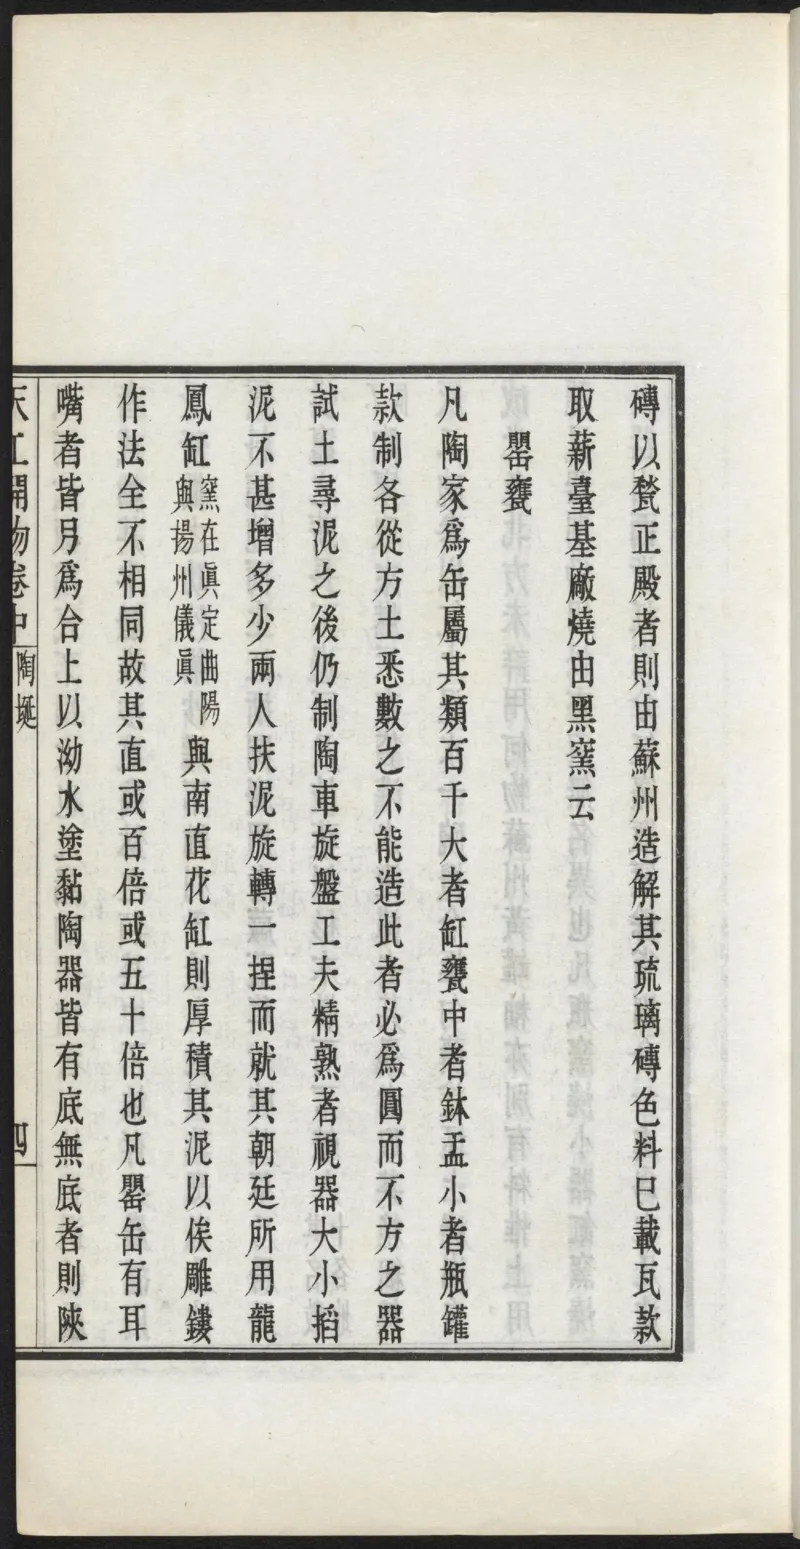 磚以甃正殿者則由蘇州造解其琉璃磚色料已載瓦款
取薪臺基廠燒由黑窯云
罌甕
凡陶家為缶屬其類百千大者缸甕中者鉢盂小者瓶罐
款制各從方土悉數之不能造此者必為圓而不方之器
試土尋泥之後仍制陶車旋盤工夫精熟者視器大小掐
泥不甚增多少兩人扶泥旋轉一捏而就其朝廷所用龍
鳳缸窯在眞定曲陽與揚州儀眞與南直花缸則厚積其泥以俟雕鏤
作法全不相同故其直或百倍或五十倍也凡罌缶有耳
嘴者皆另為合上以泑水塗黏陶器皆有底無底者則陝
天工開物卷中 陶埏 四